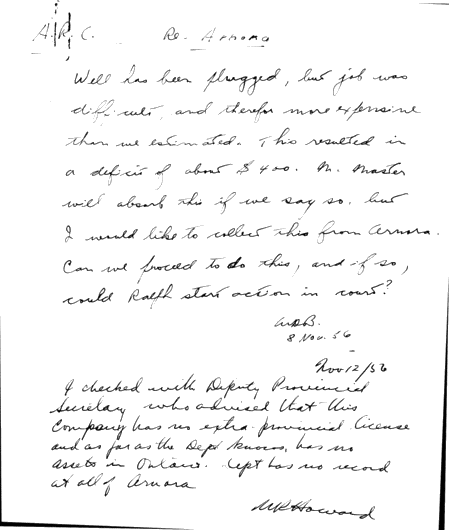 A.R.C. Re- Arnora
Well has been plugged, but job was
difficult, and therefor more expensive
than we estimated. This resulted in
a deficit of about $400. Mr. Master
will absorb this if we say so, but
I would like to collect this from Arnora.
Can we proceed to do this, and if so,
could Ralph start action in court?
8 Nov. 56
Nov 12/56
I checked with Deputy Provincial
Secretary who advised that this
Company has no extra-provincial license
and as far as the Dept knows, has no
assets in Ontario. Dept has no record
at all of Arnora
Howard